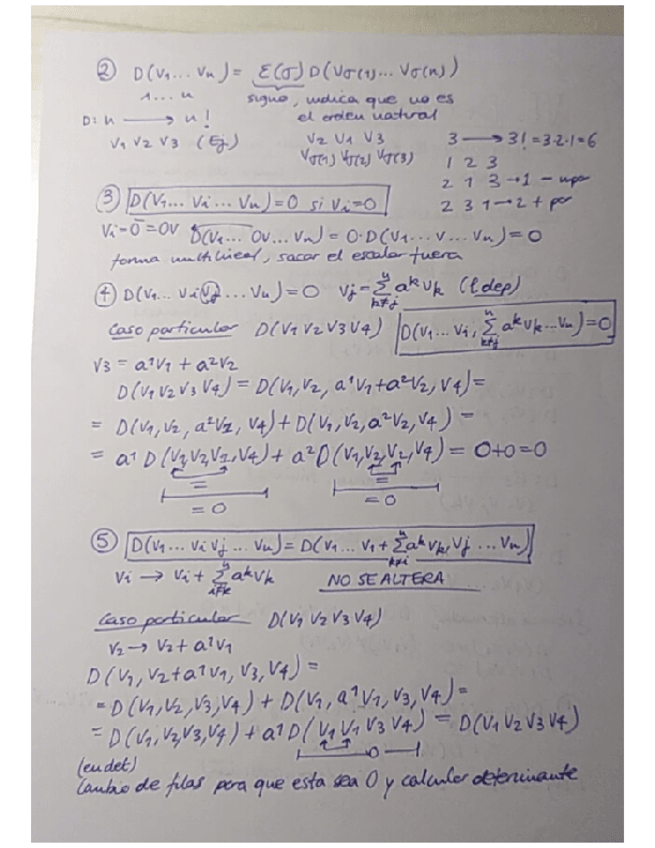 ② D(v1... vn) = ε(σ) D(vσ(1)... vσ(n))
1... n signo, indica que no es
D: n → n! el orden natural
v1 v2 v3 (Ej) v2 v1 v3 3 → 3! = 3·2·1 = 6
vσ(1) vσ(2) vσ(3) 1 2 3
2 1 3 → 1 - impar
③ D(v1... vi... vn) = 0 si vi = 0 2 3 1 → 2 + par
vi = 0 = 0v D(v1... 0v... vn) = 0·D(v1... v... vn) = 0
forma multilineal, sacar el escalar fuera
④ D(v1... vi vj... vn) = 0 vj = Σ k≠j n a^k vk (l dep)
Caso particular D(v1 v2 v3 v4) D(v1... vi, Σ k≠j n a^k vk... vn) = 0
v3 = a¹v1 + a²v2
D(v1 v2 v3 v4) = D(v1, v2, a¹v1 + a²v2, v4) =
= D(v1, v2, a¹v1, v4) + D(v1, v2, a²v2, v4) =
= a¹ D(v1, v2, v1, v4) + a² D(v1, v2, v2, v4) = 0+0=0
= =
= 0 = 0
⑤ D(v1... vi vj... vn) = D(v1... v1 + Σ k≠i n a^k vk, vj... vn)
vi → vi + Σ i≠k n a^k vk NO SE ALTERA
Caso particular D(v1 v2 v3 v4)
v2 → v2 + a¹v1
D(v1, v2 + a¹v1, v3, v4) =
= D(v1, v2, v3, v4) + D(v1, a¹v1, v3, v4) =
= D(v1, v2, v3, v4) + a¹ D(v1 v1 v3 v4) = D(v1 v2 v3 v4)
0
(en det)
Cambio de filas para que esta sea 0 y calcular determinante